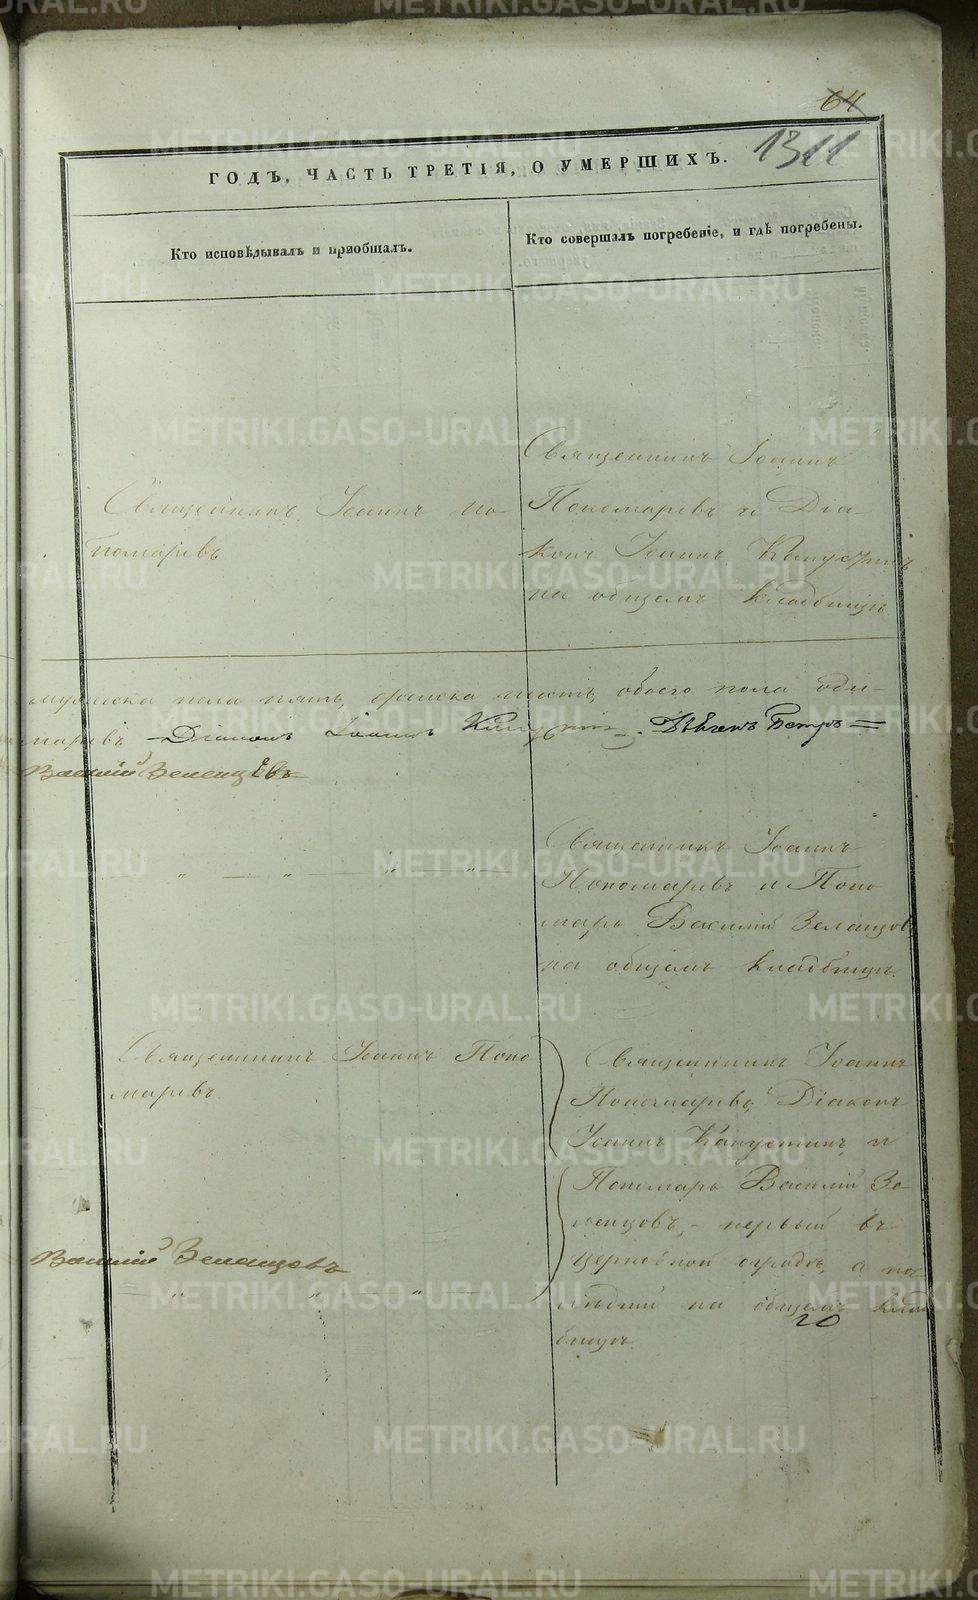 64
1311
ГОДЪ, ЧАСТЬ ТРЕТІЯ, О УМЕРШИХЪ.
Кто исповѣдывалъ и пріобщалъ.
Кто совершалъ погребеніе, и гдѣ погребены.
Священникъ Іоаннъ По-
номаревъ
Священникъ Іоаннъ
Пономаревъ и Діа-
конъ Іоаннъ Капустинъ
на общемъ кладбищѣ.
мужеска пола пять, женска шесть, обоего пола оди-
маревъ Діаконъ Іоаннъ Капустинъ. Дьячекъ Петръ =
Василій Зеленцовъ
Священникъ Іоаннъ
Пономаревъ и Поно
марь Василій Зеленцовъ
на общемъ кладбищѣ.
Священникъ Іоаннъ Поно
маревъ
Василій Зеленцовъ
Священникъ Іоаннъ
Пономаревъ, Діаконъ
Іоаннъ Капустинъ и
Пономарь Василій Зе-
ленцовъ, - первый въ
церковной оградѣ, а по
слѣдній на общемъ клад
бищѣ.
20
METRIKI.GASO-URAL.RU